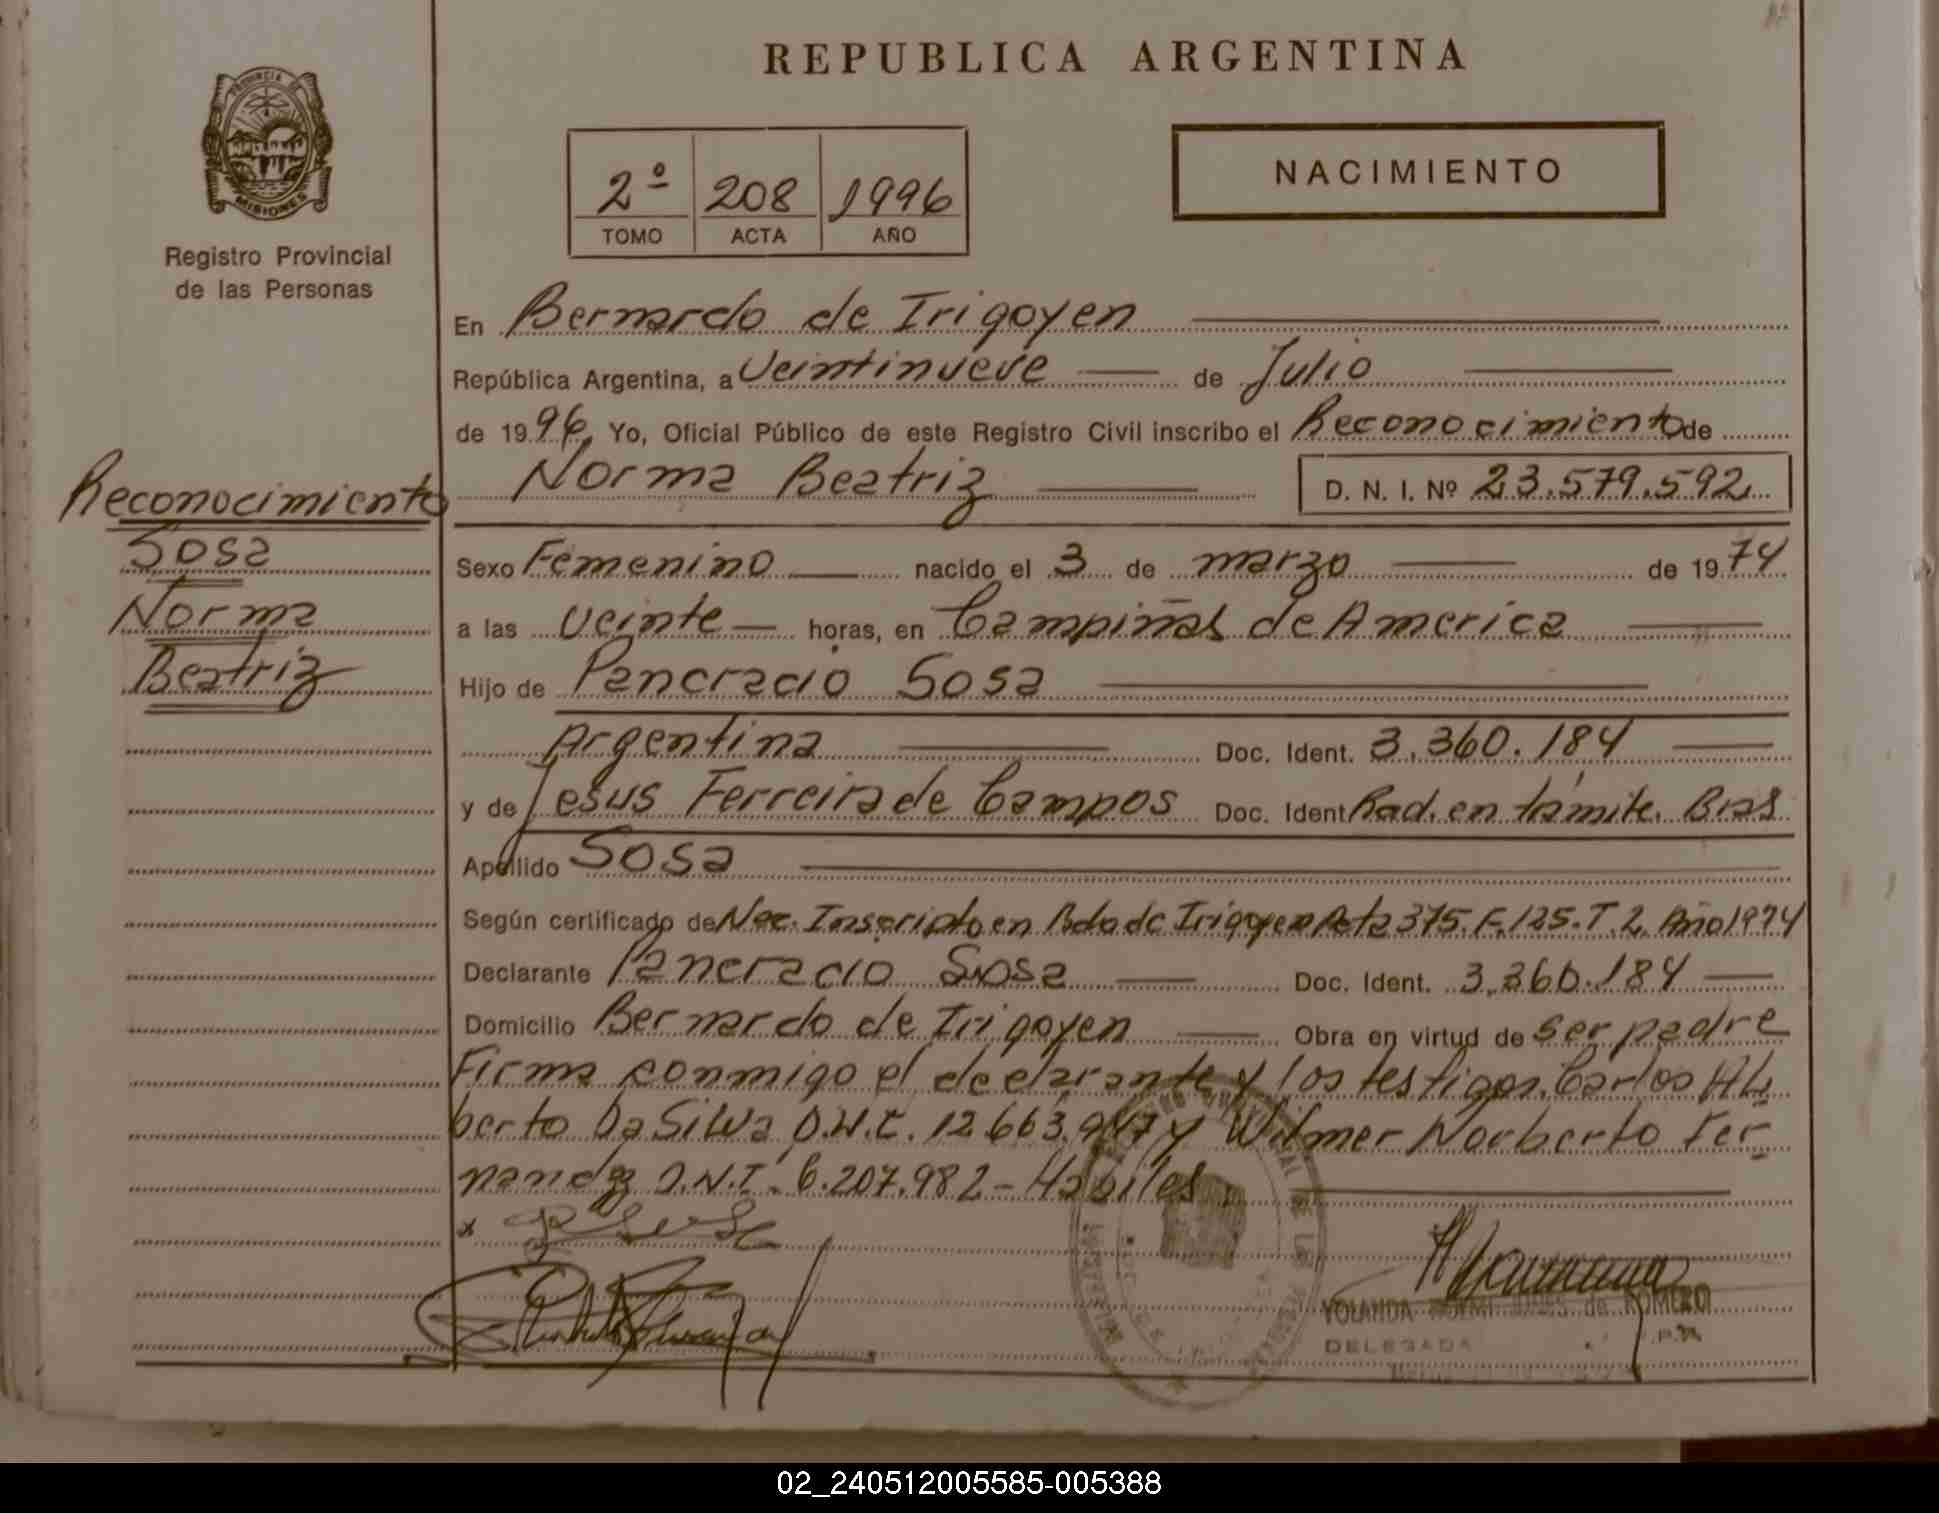 REPUBLICA ARGENTINA
PROVINCIA DE
MISIONES
Registro Provincial
de las Personas
2º 208 1996
TOMO ACTA AÑO
NACIMIENTO
En Bernardo de Irigoyen
República Argentina, a Veintinueve de Julio
de 1996 Yo, Oficial Público de este Registro Civil inscribo el Reconocimiento de
Norma Beatriz D. N. I. Nº 23.579.592
Reconocimiento
Sosa
Norma
Beatriz
Sexo Femenino nacido el 3 de marzo de 1974
a las veinte horas, en Campiñas de America
Hijo de Pancracio Sosa
Argentina Doc. Ident. 3.360.184
y de Jesus Ferreira de Campos Doc. Ident Rad. en támite. Bras
Apellido Sosa
Según certificado de Nac. Inscripto en Bdo de Irigoyen Acta 375. F. 125. T. 2. Año 1974
Declarante Pancracio Sosa Doc. Ident. 3.360.184
Domicilio Bernardo de Irigoyen Obra en virtud de ser padre
Firma conmigo el declarante y los testigos. Carlos Al-
berto Da Silva D.N.I. 12.663.947 y Wilmer Norberto Fer-
nandez D.N.I. 6.207.982 - Habiles
YOLANDA NOEMI de ROMERO
DELEGADA
02_240512005585-005388